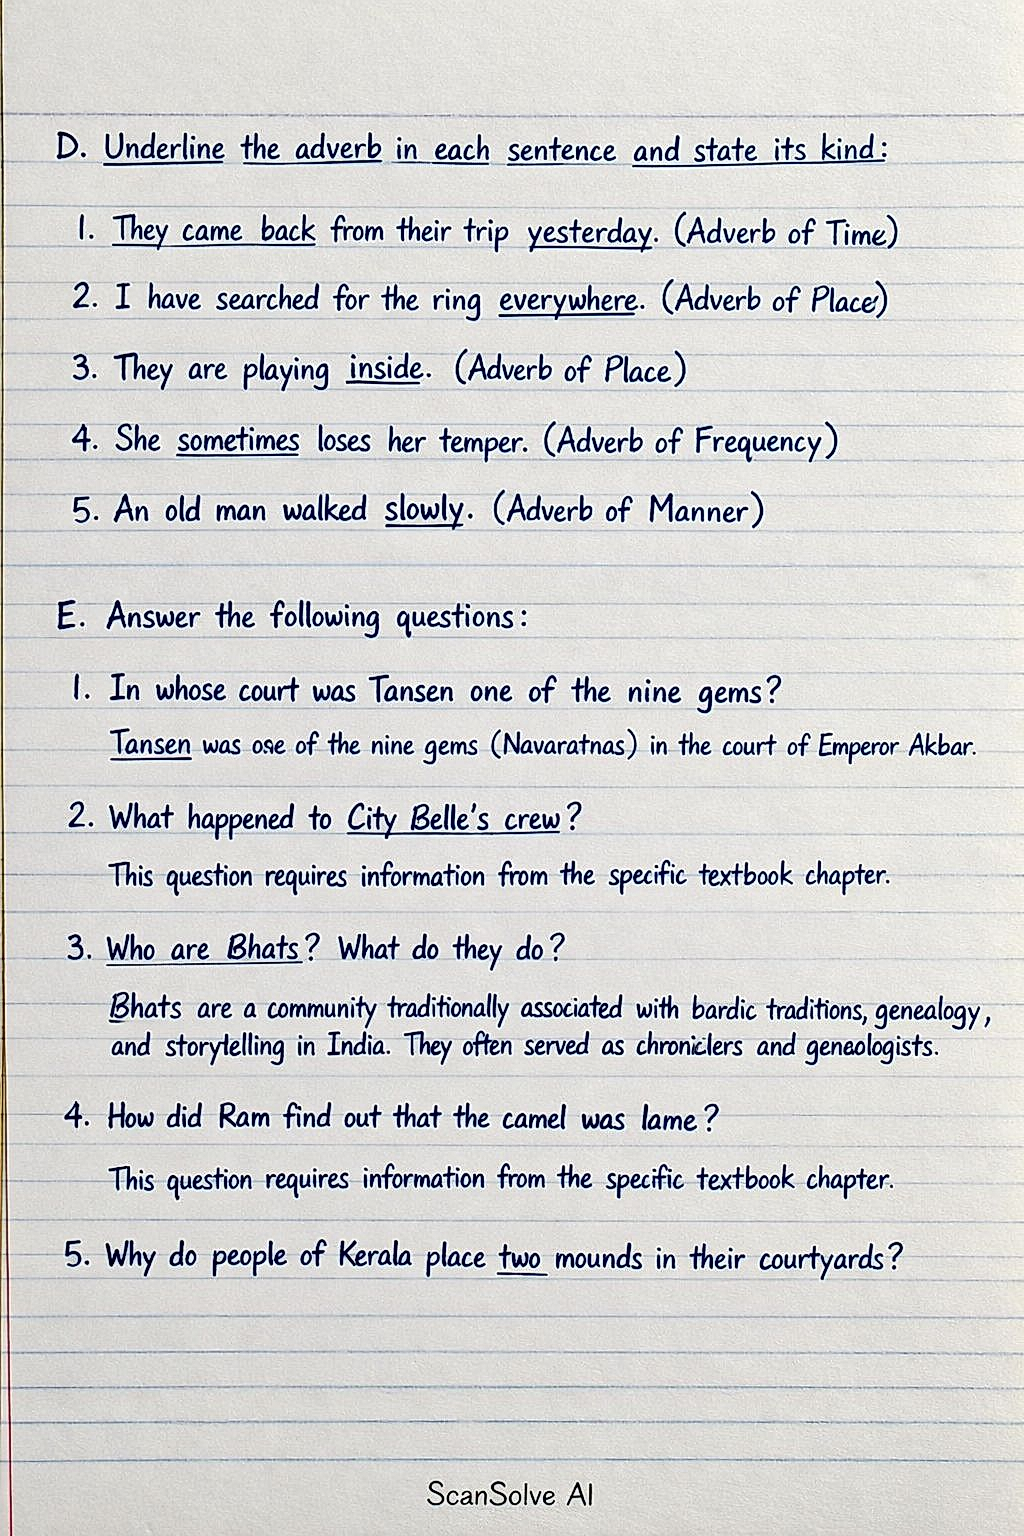 D. Underline the adverb in each sentence and state its kind:
1. They came back from their trip yesterday. (Adverb of Time)
2. I have searched for the ring everywhere. (Adverb of Place)
3. They are playing inside. (Adverb of Place)
4. She sometimes loses her temper. (Adverb of Frequency)
5. An old man walked slowly. (Adverb of Manner)
E. Answer the following questions:
1. In whose court was Tansen one of the nine gems?
Tansen was one of the nine gems (Navaratnas) in the court of Emperor Akbar.
2. What happened to City Belle's crew?
This question requires information from the specific textbook chapter.
3. Who are Bhats? What do they do?
Bhats are a community traditionally associated with bardic traditions, genealogy,
and storytelling in India. They often served as chroniclers and genealogists.
4. How did Ram find out that the camel was lame?
This question requires information from the specific textbook chapter.
5. Why do people of Kerala place two mounds in their courtyards?
ScanSolve AI